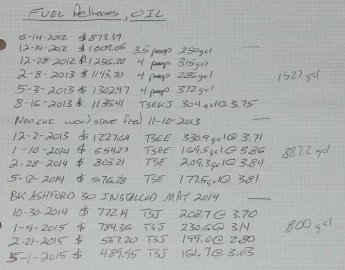 FUEL Delhomes, OIL
6-14-2012 $ 873.39
12-14-2012 $ 1009.06 3.5 prep 250gal
12-28-2012 $ 1256.28 4 prep 315gal
2-8-2013 $ 1145.70 4 prep 286gal
5-3-2013 $ 1302.97 4 prep 372gal
8-16-2013 $ 1136.41 304gal @ 3.75
1527 gal
wood stove fuel 11-10-2013
12-2-2013 $ 1227.64 TSEE 330.9gal@ 3.71
1-10-2014 $ 654.27 TSEE 169.5gal@ 3.86
2-28-2014 $ 803.21 TSE 209.3gal@ 3.84
5-12-2014 $ 676.28 TSE 177.5gal@ 3.81
887.2 gal
BK ASHFORD 30 INSTALLED MAY 2014
10-30-2014 $ 772.19 TSJ 208.7@ 3.70
1-9-2015 $ 724.36 TSJ 230.6@ 3.14
2-21-2015 $ 557.20 TSJ 199.0@ 2.80
5-1-2015 $ 489.95 TSJ 161.7@ 3.03
800 gal